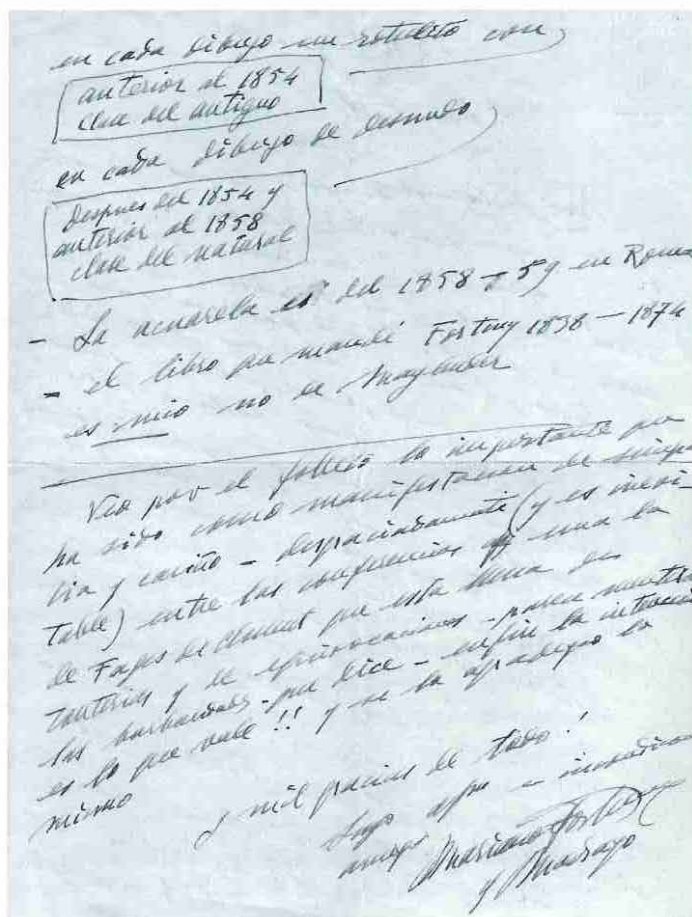 en cada dibujo un rotulito con
anterior al 1854
clase del antiguo
en cada dibujo de desnudo
despues del 1854 y
anterior al 1858
clase del natural
- La acuarela es del 1858 - 59 en Roma
- el libro que mandé Fortuny 1838 — 1874
es mio no de Maylander
Veo por el folleto lo importante que
ha sido como manifestacion de simpa-
tia y cariño - desgraciadamente (y es inevi-
table) entre las conferencias hay una la
de Fages de Climent que esta llena de
tonterias y de equivocaciones - parece mentira
las barbaridades que dice - en fin la intencion
es lo que vale !! y se la agradezco lo
mismo
y mil gracias de todo !
Suyo afmo e
amigo Mariano Fortuny
y Madrazo